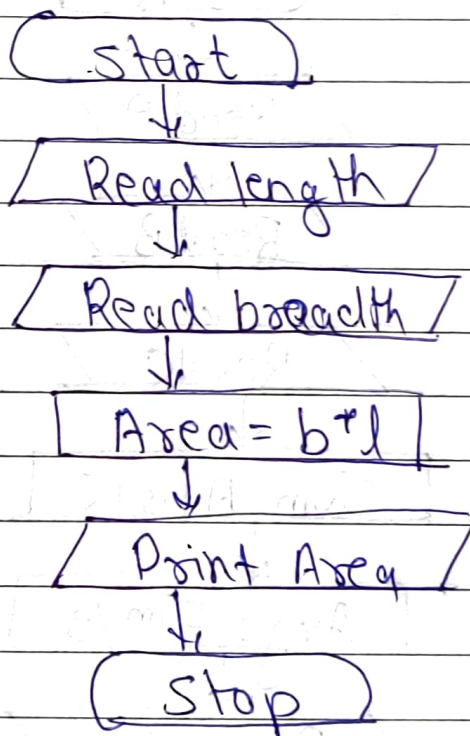 Start
Read length
Read breadth
Area = b*l
Print Area
Stop